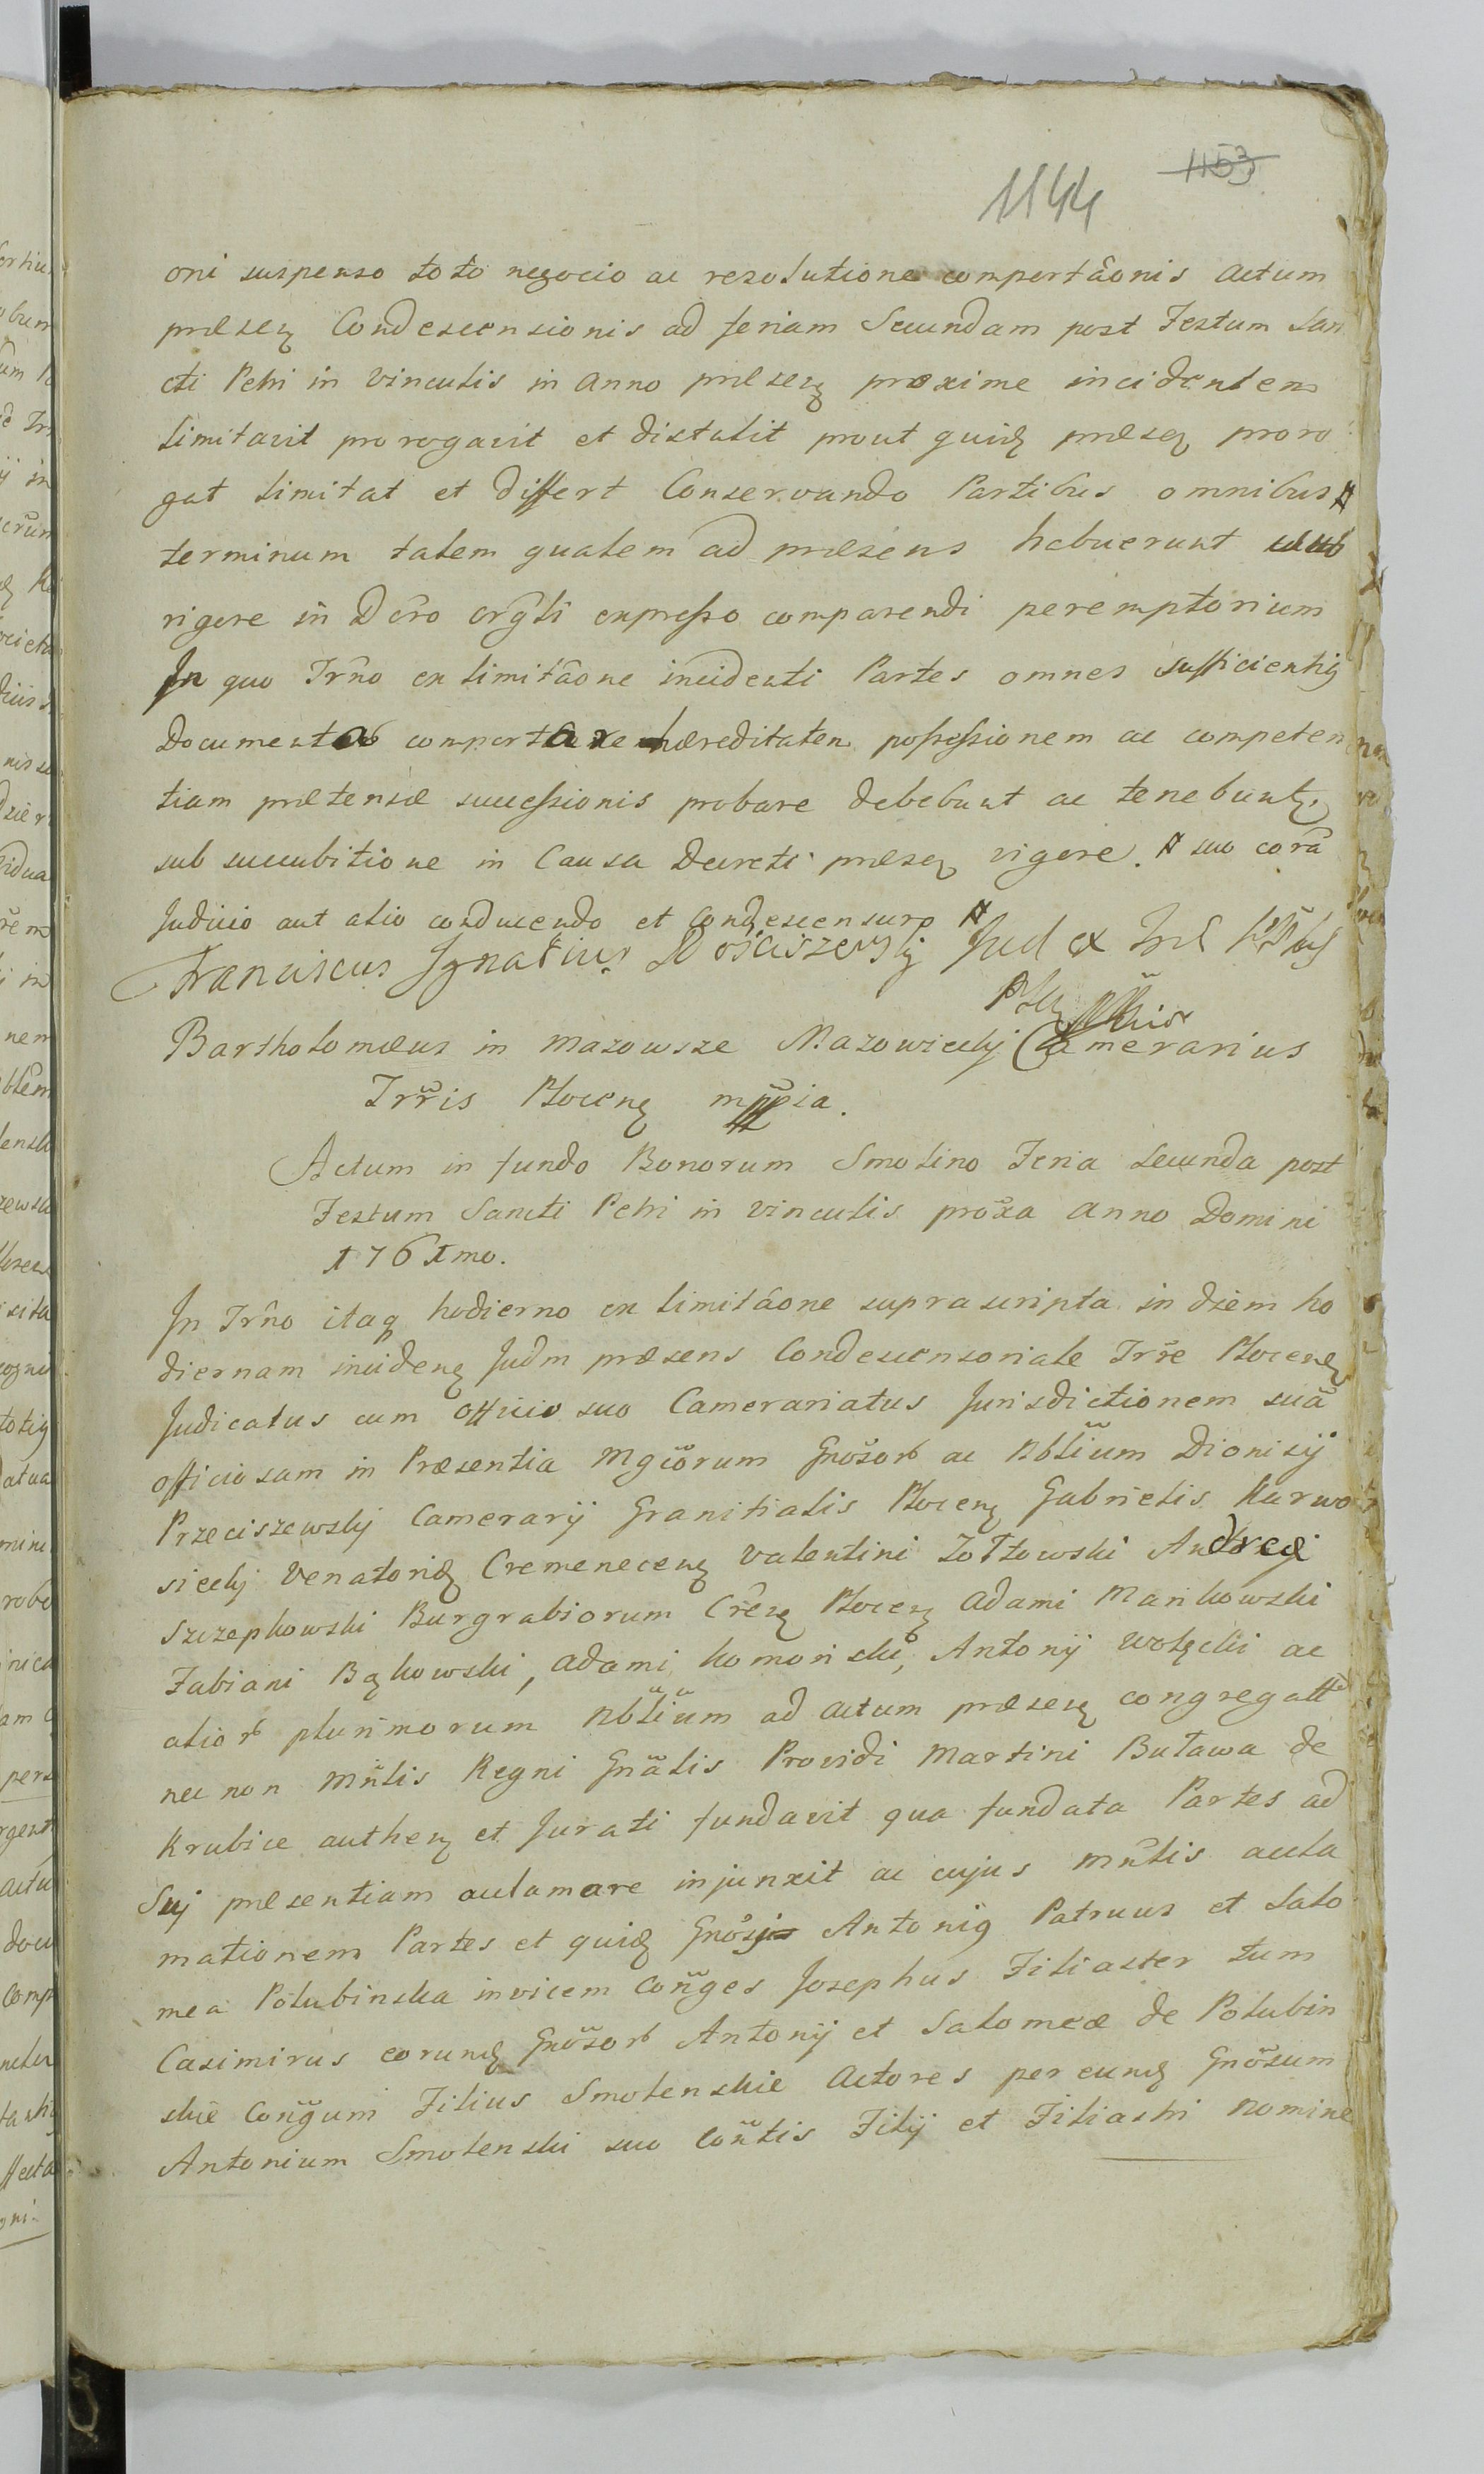 1144 1153
oni suspenso toto negocio ac resolutione comportãonis actum
præseɳ Condescensionis ad feriam Secundam post Festum San
cti Petri in vinculis in anno præseɳ proxime incidentem
limitavit prorogavit et distulit prout quidɳ præseɳ proro
gat limitat et differt Conservando Partibus omnibus #
terminum talem qualem ad præsens habuerunt
vigore in Dcro orgli expresso comparendi peremptorium
In quo Trño ex limitãone incidenti Partes omnes sufficientia
Documenta comportare hæreditatem possessionem ac competen
tiam prætensæ successionis probare debebunt ac tenebuntur
sub succubitione in Causa Decreti præseɳ vigore. # suo corã
Judicio aut alio conducendo et Condescensuro #
Franciscus Ignatius
Bartholomæus in Mazowsze Mazowiecky Camerarius
Trr̃is Plocenɳ mppia.
Actum in fundo Bonorum Smolino Feria Secunda post
Festum Sancti Petri in vinculis prox̃a Anno Domini
1761mo.
In Trño itaq hodierno ex limitãone suprascripta in diem ho
diernam incidenɳ Judm præsens Condescensoriale Trr̃e Plocenɳ
Judicatus cum officio suo Camerariatus Jurisdictionem suã
officiosam in Præsentia Mgcõrum Gnõsorb ac Nblium Dionisij
Przeciszewsky Camerarij Granitialis Plocenɳ Gabrielis Karwo
siecky Venatoridɳ Cremenecenɳ Valentini Zołtowski Andreæ
Szczepkowski Burgrabiorum Crẽsɳ Plocenɳ Adami Mankowski
Fabiani Bąkowski, Adami Komorski, Antonij Wołęcki ac
aliorb plurimorum Nblium ad actum præseɳ congregatt
nec non Mñlis Regni Gnãlis Providi Martini Buława de
Krubice authenɳ et Jurati fundavit qua fundata Partes ad
Suj præsentiam acclamare injunxit ac cujus Mñlis accla
mationem Partes et quidɳ Gnõsi Antonig Patruus et Salo
mea Połubinska invicem Coñges Josephus Filiaster tum
Casimirus eorundɳ Gnõsorb Antonij et Salomeæ de Połubin
skie Coñgum Filius Smolenskie Actores per eundɳ Gnõsum
Antonium Smolenski suo Coñtis Filij et Filiastri nomine